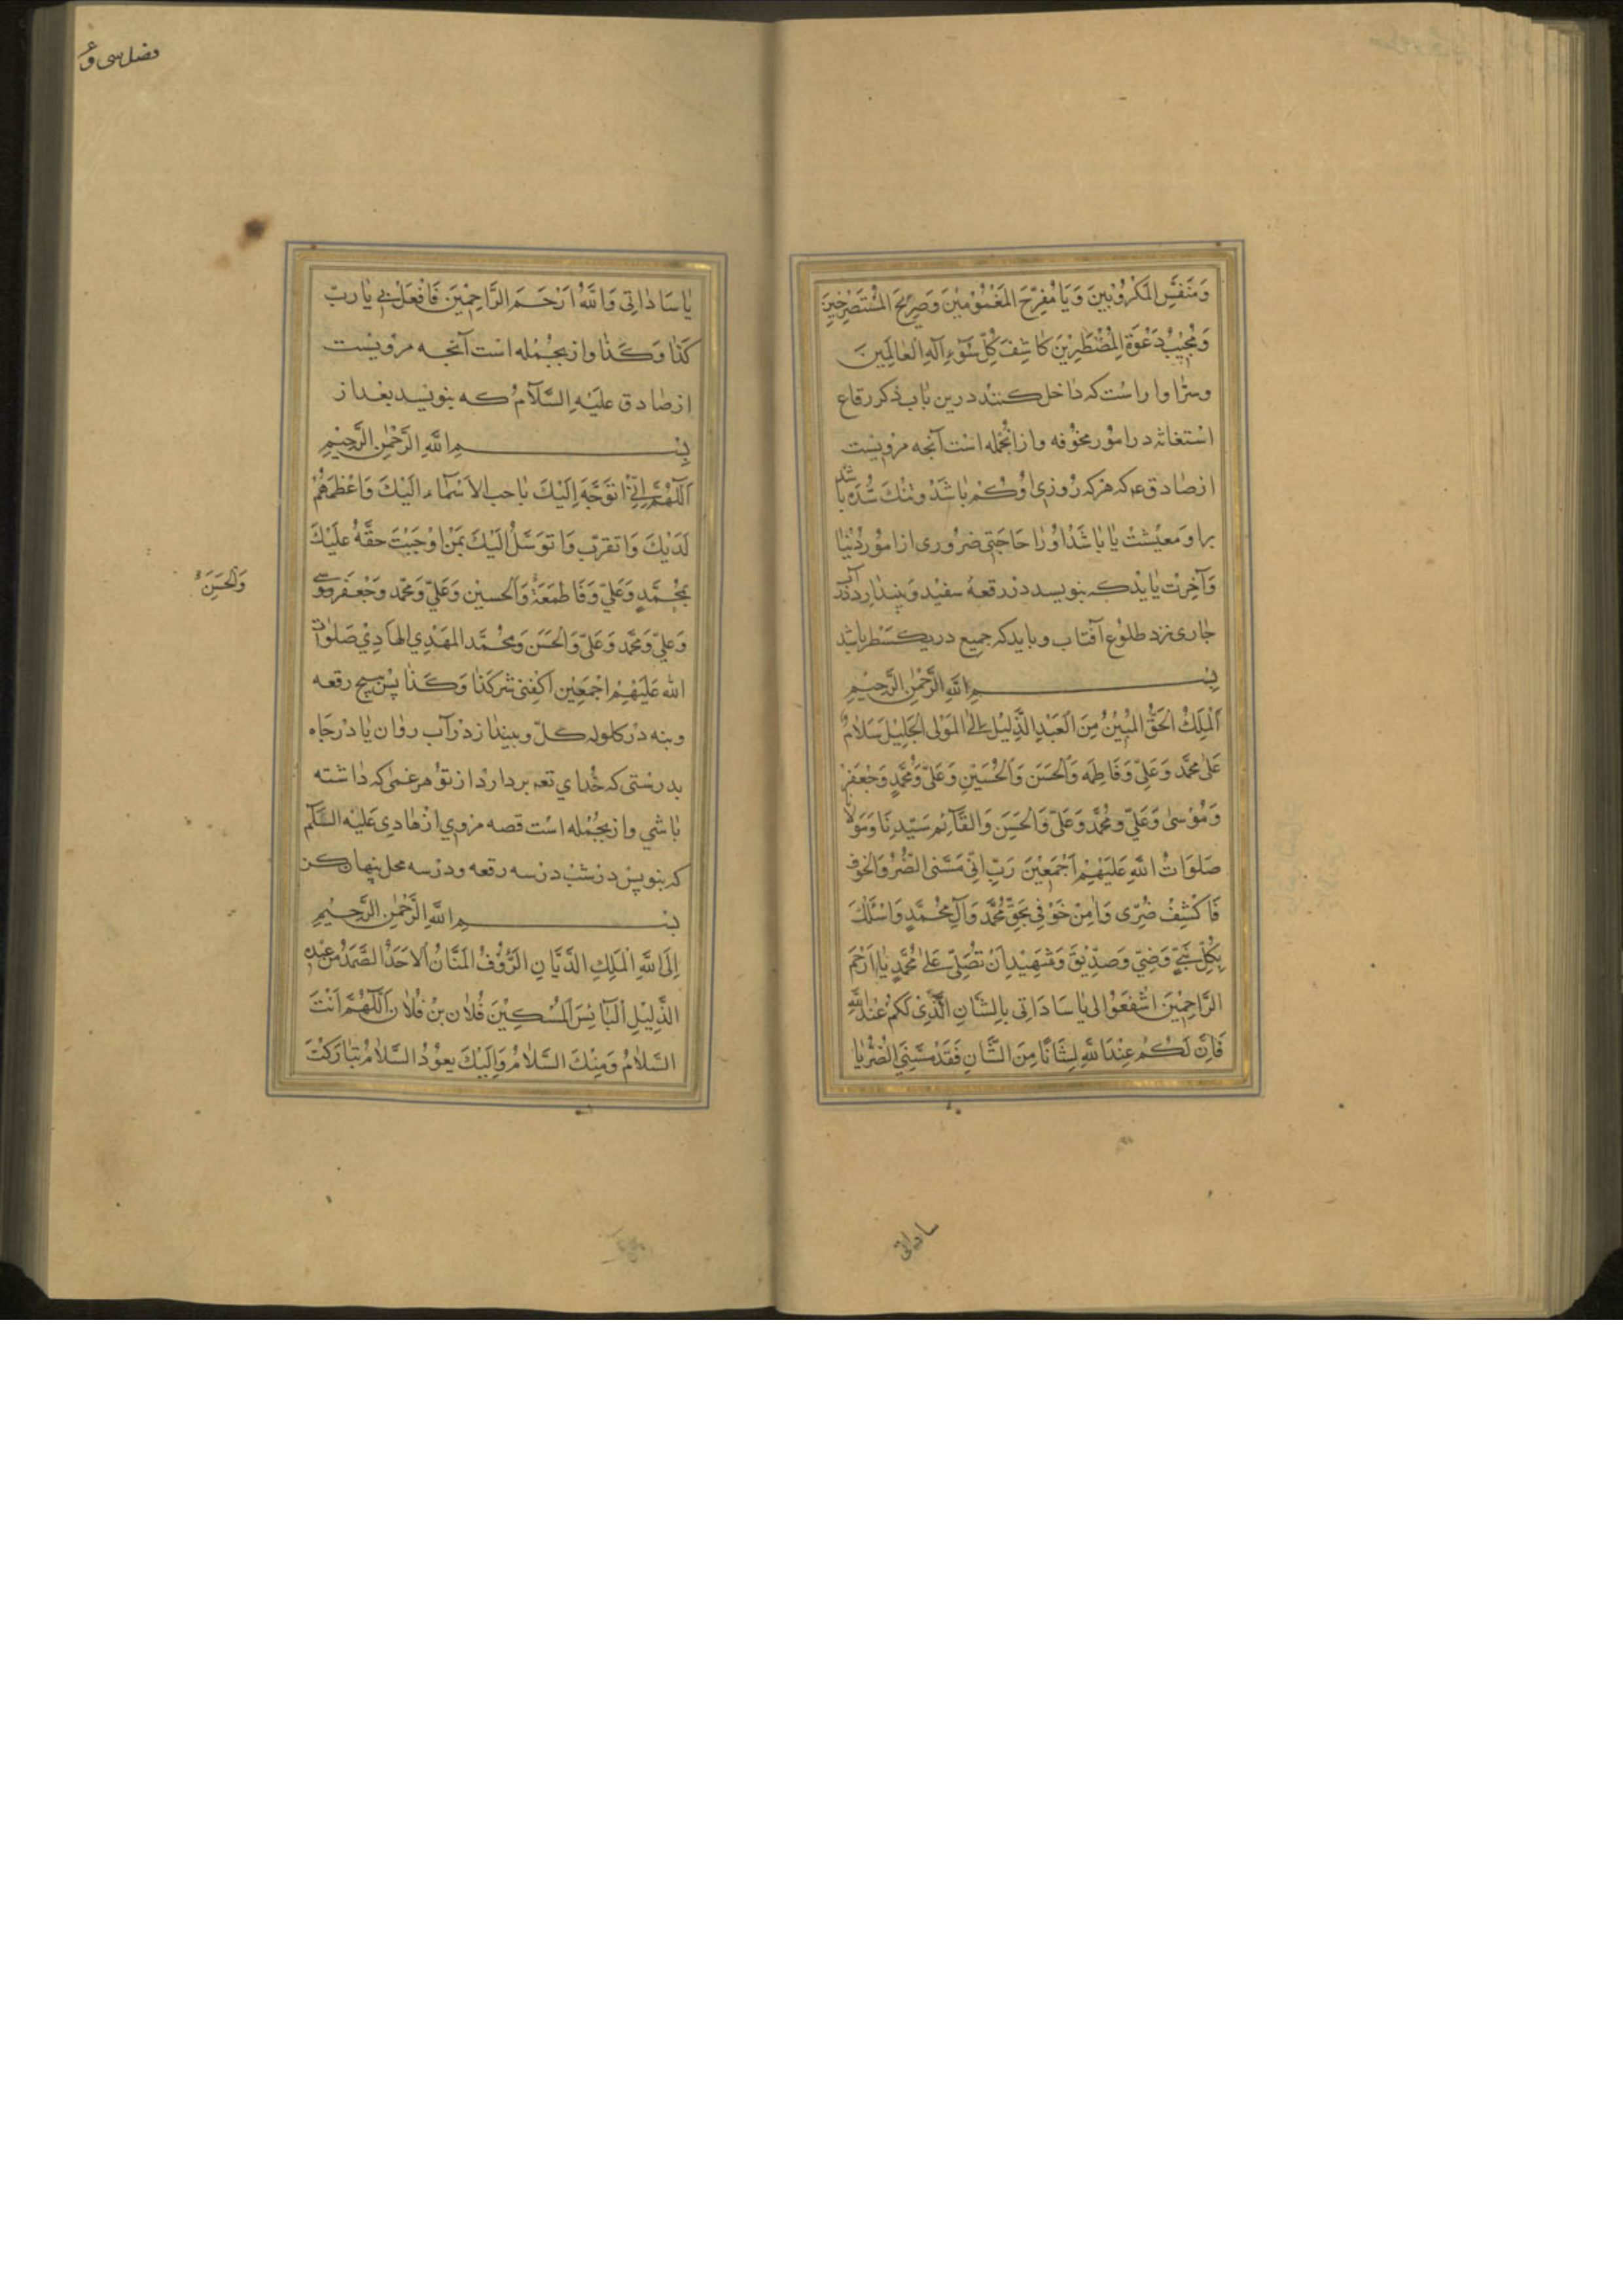 وَمُنَفِّسَ المَكْرُوْبِينَ وَيَا مُفَرِّحَ المَغْمُوْمِيْنَ وَصَرِيْخَ المُسْتَصْرِخِيْنَ
وَمُجِيْبُ دَعْوَةِ المُضْطَرِّيْنَ كاشِفَ كُلِّ سُوْءٍ اِلهِ العٰالَمِينَ
وسزاوار است كه داخل كنند درين باب ذكر رقاع
استغاثه در امور مخوفه و از انجمله است آنچه مرويست
از صادق ع كه هركه روزى او كم باشد و تنك شده باشد
برا و معيشت يا باشد او را حاجتى ضرورى از امور دنيا
وآخرت يا يدكه بنويسد در رقعهٔ سفيد و بيندازد در آب
جارى نزد طلوع آفتاب و بايدكه جميع در يك سطر باشد
بِسْمِ اللهِ الرَّحْمٰنِ الرَّحِيْمِ
اَلْمَلِكُ الحَقُّ المُبِيْنُ مِنَ العَبْدِ الذَّلِيْلِ اِلَى المَوْلى الجَلِيْلِ سَلَامٌ
عَلى مُحَمَّد وَعَلِيّ وَفَاطِمَه وَالحَسَن وَالحُسَيْنِ وَعَلِيّ وَمُحَمَّدٍ وَجَعْفَرْ
وَمُوْسٰى وَعَلِيّ ومُحَمَّد وَعَلِيّ وَالحَسَنِ وَالقَآئِم سَيِّدِنَا وَمَوْلانَا
صَلَوَاتُ اللهِ عَلَيْهِمْ اَجْمَعِيْنَ رَبِّ اِنِّي مَسَّنِى الضُّرُّ وَالخَوْفُ
فَاكْشِفْ ضُرِّى وَاٰمِنْ خَوْفِي بِحَقِّ مُحَمَّد وَآلِ مُحَمَّدٍ وَاَسْئَلُكَ
بِكُلِّ نَبِيٍّ وَوَصِيّ وَصِدِّيْقٍ وَشَهِيْدٍ اَنْ تُصَلِّى عَلى مُحَمَّدٍ يٰا اَرْحَمَ
الرَّاحِمِيْنَ اشْفَعُوْا لى يٰا سَادَاتِى بِالشَّانِ الَّذِىْ لَكُمْ عِنْدَ اللهِ
فَاِنَّ لَكُمْ عِنْدَ اللهِ لَشَانًا مِنَ الشَّانِ فَقَدْ مَسَّنِيَ الضُّرُّ يٰا
ساداتى
فصل سى و
يٰا سَادٰاتِى وَاللهُ اَرْحَمُ الرَّاحِمِيْنَ فَافْعَلْ بِي يٰا رَبّ
كَذٰا وَكَذٰا و ازينجمله است آنچه مرويست
از صادق عليه السلام كه بنويسد بعد از
بِسْمِ اللهِ الرَّحْمٰنِ الرَّحِيْمِ
اَللّٰهُمَّ اِنِّي اَتَوَجَّهُ اِلَيْكَ بِاَحبّ الاَسْمَآءِ اِلَيْكَ وَاَعْظَمِهُمْ
لَدَيْكَ وَاَتَقَرَّبُ وَاَتَوَسَّلُ اِلَيْكَ بِمَنْ اَوْجَبْتَ حَقَّهُ عَلَيْكَ
بِمُحَمَّدٍ وَعَلِيّ وَفَاطِمَةَ وَالحسيْن وَعَلِيّ وَمُحَمَّد وَجَعْفَر وَمُوْسى
وَالحَسَنَ
وَعَلِيّ وَمُحَمَّد وَعَلِيّ وَالحَسَن وَمُحَمَّد المَهْدِيِ الهادِيْ صَلَوٰات
الله عَلَيْهِمْ اجْمَعِيْن اكْفِنِى شر كَذٰا وَكَذٰا پس پيچ رقعه
وبنه در كلوله كل و بينداز در آب روان يا در چاه
بدرستى كه خداي تعه بردارد از تو هر غمى كه داشته
باشي و ازينجمله است قصه مروي از هادى عليه السلم
كه بنويس در شب در سه رقعه و در سه محل پنهان كن
بِسْمِ اللهِ الرَّحْمٰنِ الرَّحِيْمِ
اِلَى اللهِ المَلِكِ الدَّيَّانِ الرَّؤُفِ المَنَّانِ الاَحَدِ الصَّمَدِ مِنْ عَبْدِهِ
الذَّلِيْلِ البَائِسِ المُسْكِيْنِ فُلان بْنُ فُلان اَللّٰهُمَّ اَنْتَ
السَّلامُ وَمِنْكَ السَّلامُ وَاِلَيْكَ يَعُوْدُ السَّلامُ تَبَارَكْتَ